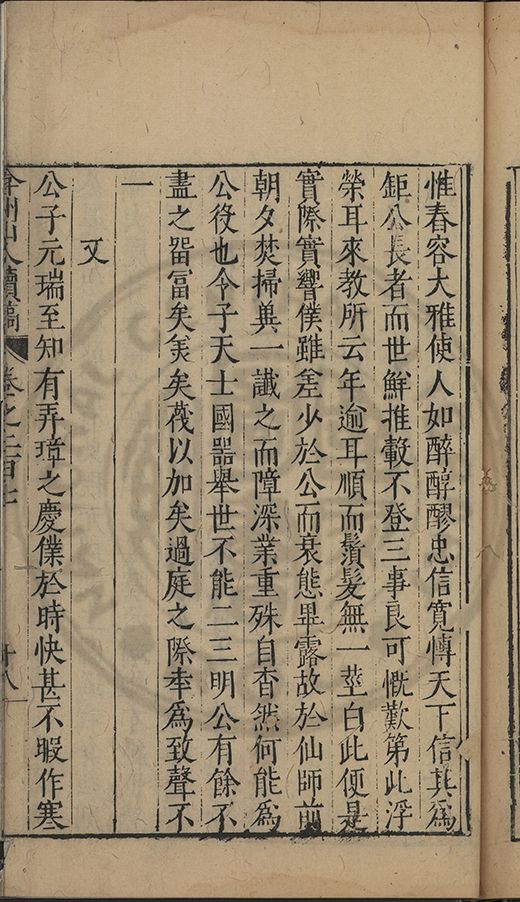 惟春容大雅使人如醉醇醪忠信寬慱天下信其爲
鉅公長者而世鮮推轂不登三事良可慨歎第此浮
榮耳來教所云年逾耳順而鬚髮無一莖白此便是
實際實響僕雖差少於公而衰態畢露故於仙師前
朝夕焚掃兾一讖之而障深業重殊自杳然何能爲
公役也令子天士國噐舉世不能二三明公有餘不
盡之畱冨矣羙矣蔑以加矣過庭之際幸爲致聲不
一
又
公子元瑞至知有弄璋之慶僕於時快甚不暇作寒
弇州山人續稿 卷之二百七 十八